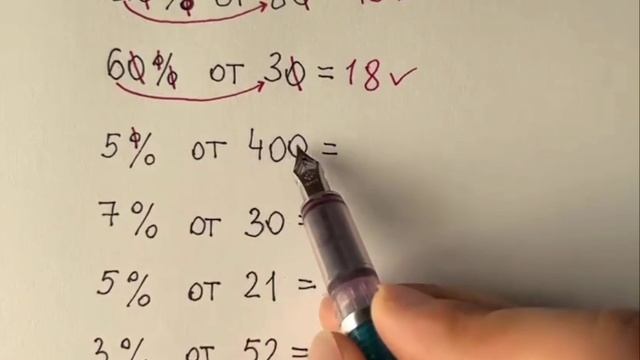 60% от 30 = 18 ✓
5% от 400 =
7% от 30 =
5% от 21 =
3% от 52 =